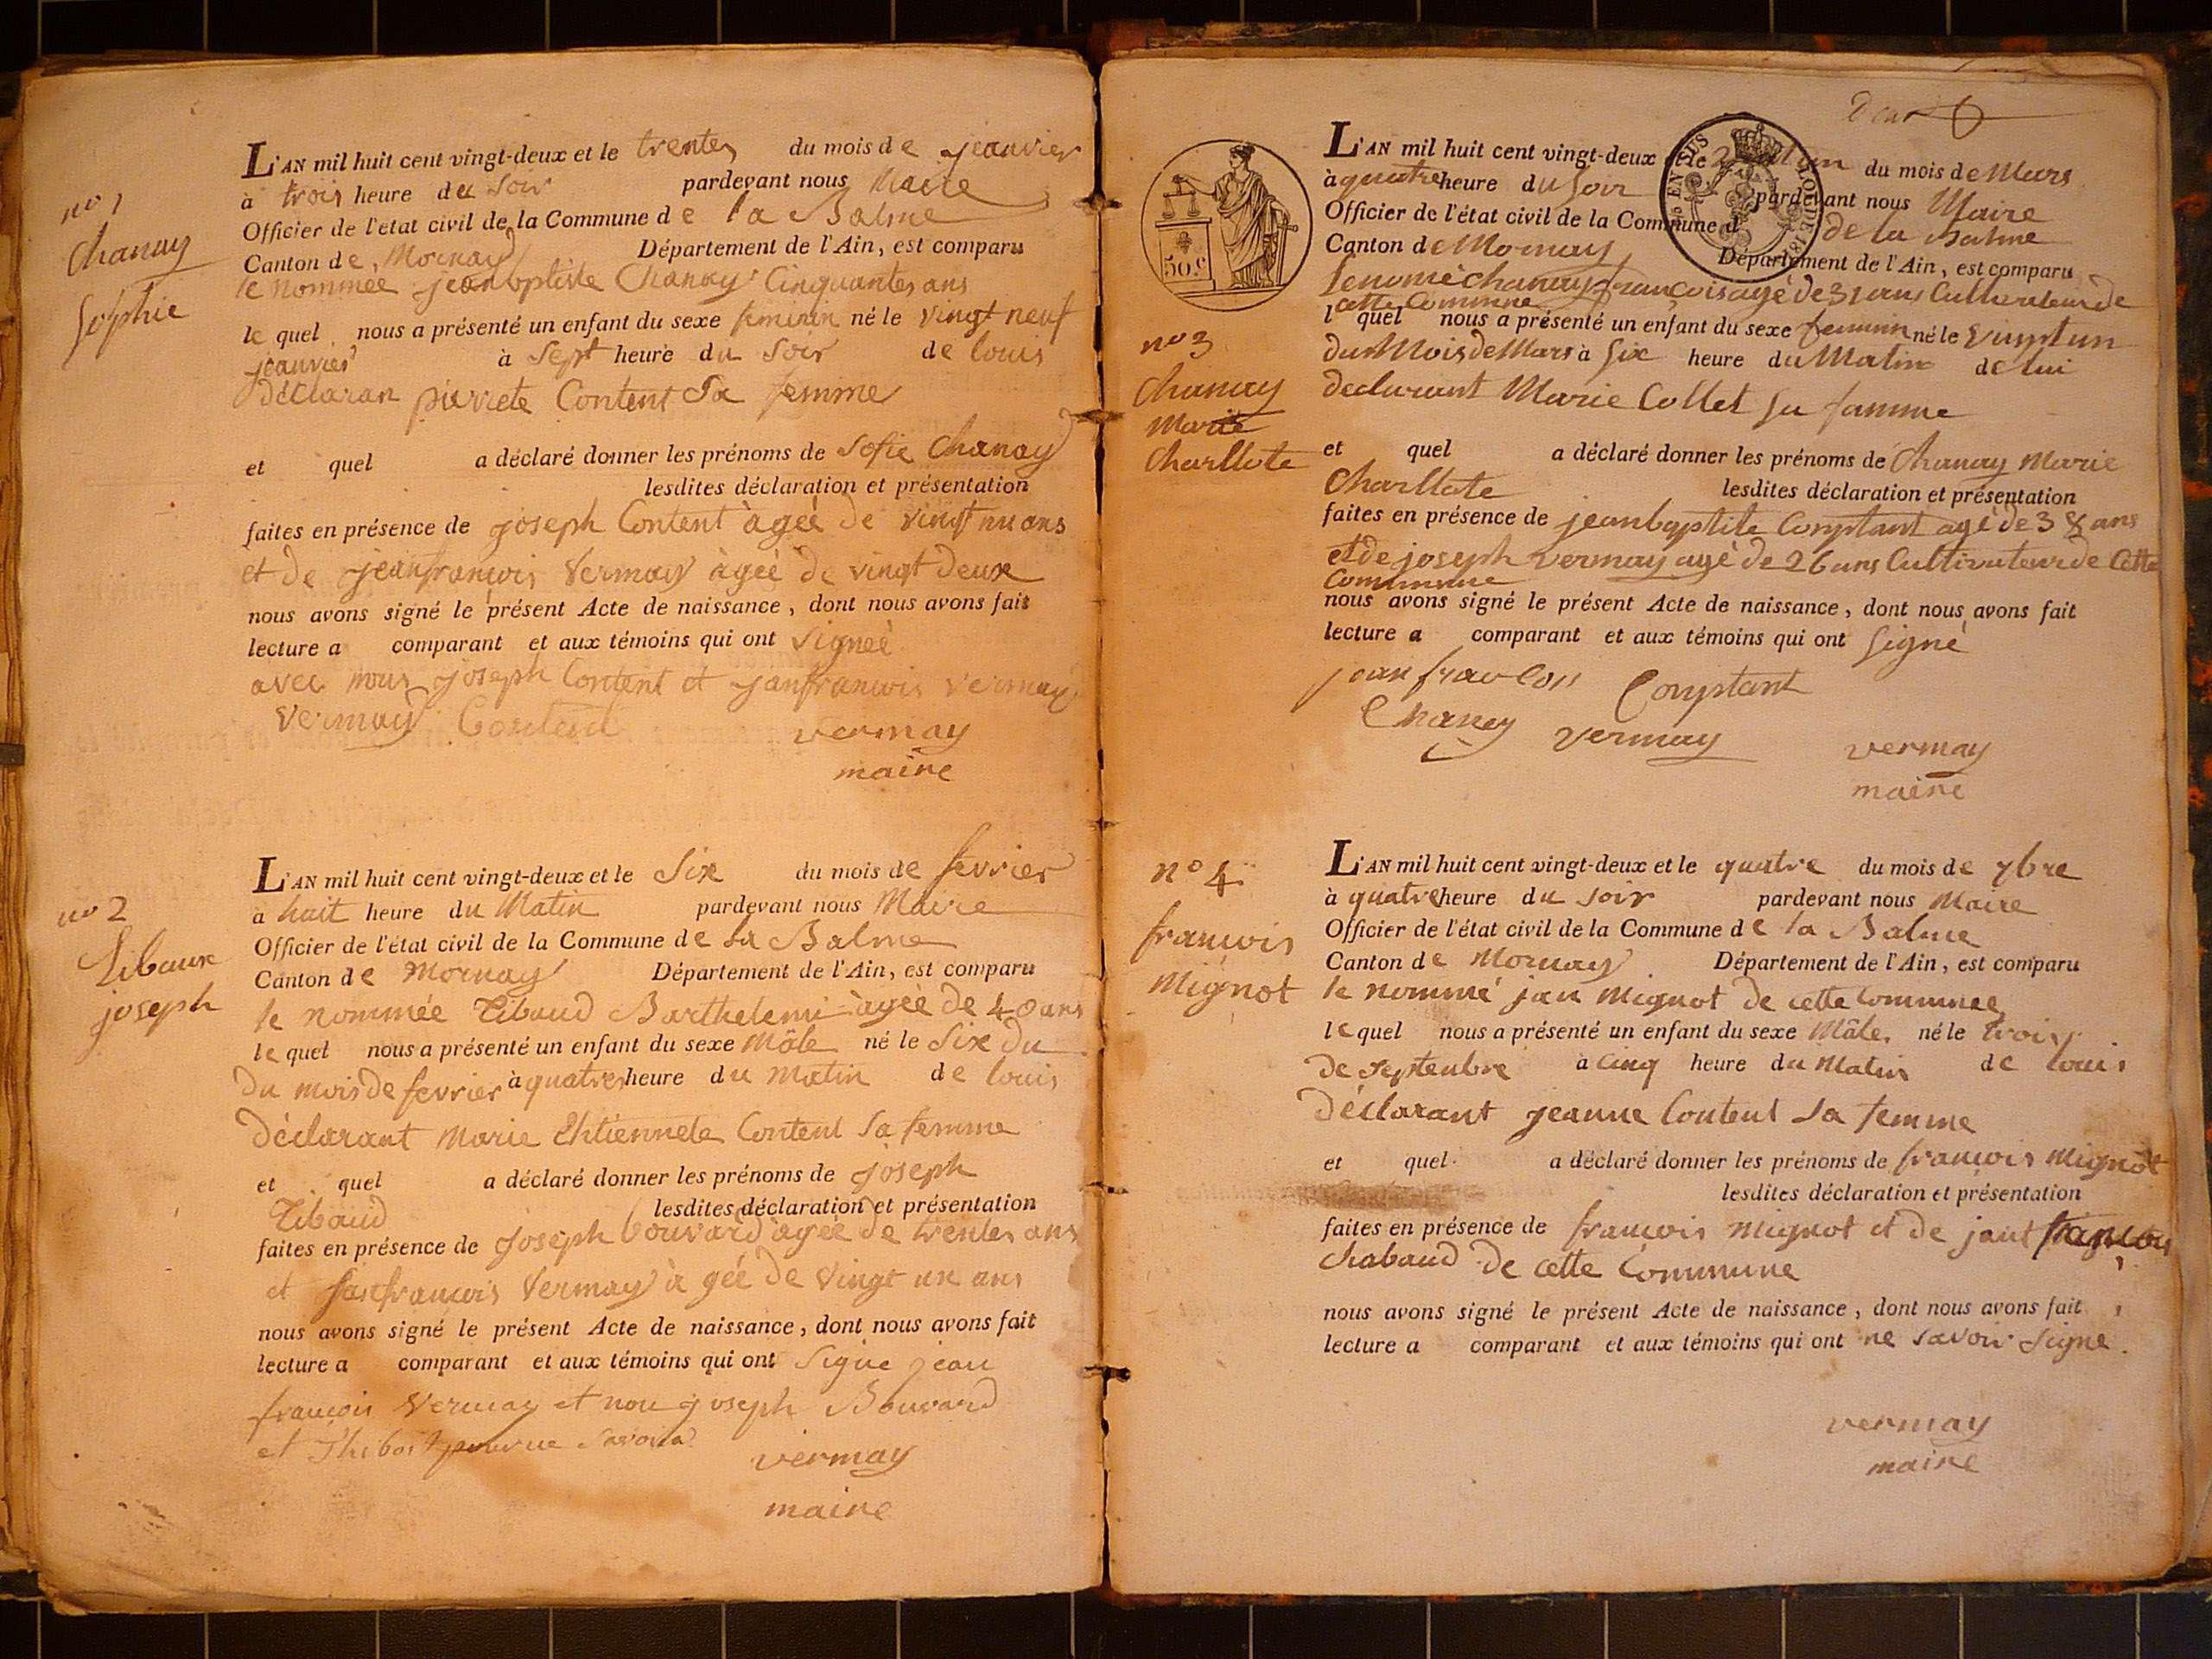 nº 1
Chanay
Sophie
L'AN mil huit cent vingt-deux et le trentes du mois de jeanvier
à trois heure du soir pardevant nous Maire
Officier de l'état civil de la Commune de la Balme
Canton de Mornay Département de l'Ain, est comparu
le nommée jeanbptiste Chanay Cinquantes ans
le quel nous a présenté un enfant du sexe feminin né le vingt neuf
jeanvier à sept heure du soir de louis
déclaran pierrete Content Sa femme
et quel a déclaré donner les prénoms de Sofie Chanay
lesdites déclaration et présentation
faites en présence de joseph Content àgéé de vingt nu ans
et de jeanfrançois Vermay àgéé de vingt deux
nous avons signé le présent Acte de naissance, dont nous avons fait
lecture a comparant et aux témoins qui ont signéé
avec nous joseph Content et janfrancois vermay
vermay Contend vermay
maire
nº 2
Tibaux
joseph
L'AN mil huit cent vingt-deux et le Six du mois de fevrier
à huit heure du Matin pardevant nous Maire
Officier de l'état civil de la Commune de la Balme
Canton de Mornay Département de l'Ain, est comparu
le nommée Tibaud Barthelemi àgéé de 40 ans
le quel nous a présenté un enfant du sexe Mâle né le Six du
du mois de fevrier à quatres heure du matin de louis
déclarant Marie Ehtiennete Content Sa femme
et quel a déclaré donner les prénoms de joseph
Tibaud lesdites déclaration et présentation
faites en présence de joseph bouvard agéé de trentes ans
et janfrancois Vermay à géé de vingt un ans
nous avons signé le présent Acte de naissance, dont nous avons fait
lecture a comparant et aux témoins qui ont signe jean
françois Vermay et non joseph Bouvard
et Thibost pour ne
vermay
maire
50 c
L'AN mil huit cent vingt-deux et le du mois de Mars
à quatre heure du Soir pardevant nous Maire
Officier de l'état civil de la Commune d de la Balme
Canton de Mornay Département de l'Ain, est comparu
le nomé chanay françois agé de 31 ans Cultivateur de
cette Commune
l quel nous a présenté un enfant du sexe feminin né le vingt un
du Mois de Mars à Six heure du Matin de lui
declarant Marie Collet Sa famme
nº 3
Chanay
Marie
Charllote
et quel a déclaré donner les prénoms de Chanay Marie
Charllote lesdites déclaration et présentation
faites en présence de jeanbaptite Conptant agé de 38 ans
et de joseph vermay agé de 26 ans Cultivateur de Cette
Commune
nous avons signé le présent Acte de naissance, dont nous avons fait
lecture a comparant et aux témoins qui ont signé
jean Conptant
Chaney vermay vermay
maire
nº 4
françois
Mignot
L'AN mil huit cent vingt-deux et le quatre du mois de 7bre
à quatre heure du soir pardevant nous Maire
Officier de l'état civil de la Commune de la Balme
Canton de Mornay Département de l'Ain, est comparu
le nommé jau Mignot de cette Communee
le quel nous a présenté un enfant du sexe Mâle né le trois
de septenbre à cinq heure du Matin de louis
déclarant jeanne Content Sa femme
et quel a déclaré donner les prénoms de françois Mignot
lesdites déclaration et présentation
faites en présence de françois Mignot et de
Chabaud de cette Commune
nous avons signé le présent Acte de naissance, dont nous avons fait
lecture a comparant et aux témoins qui ont ne savoir signe.
vermay
maire